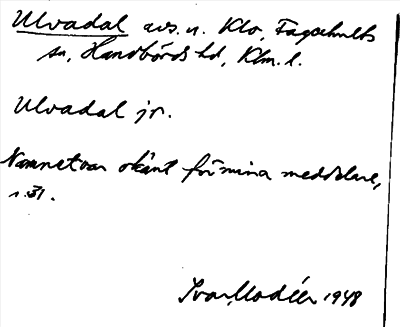 Ulvadal avs. u. Klo, Fagerhults
sn, Handbörds hd, Klm. l.
Ulvadal jr.
Namnet var okänt för mina meddelare,
s. 31.
Ivar Modéer 1948